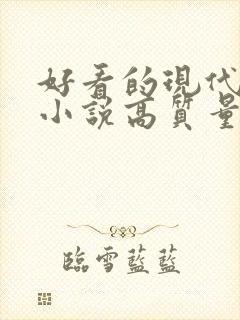 好看的現代
小說高質量
臨雪藍藍